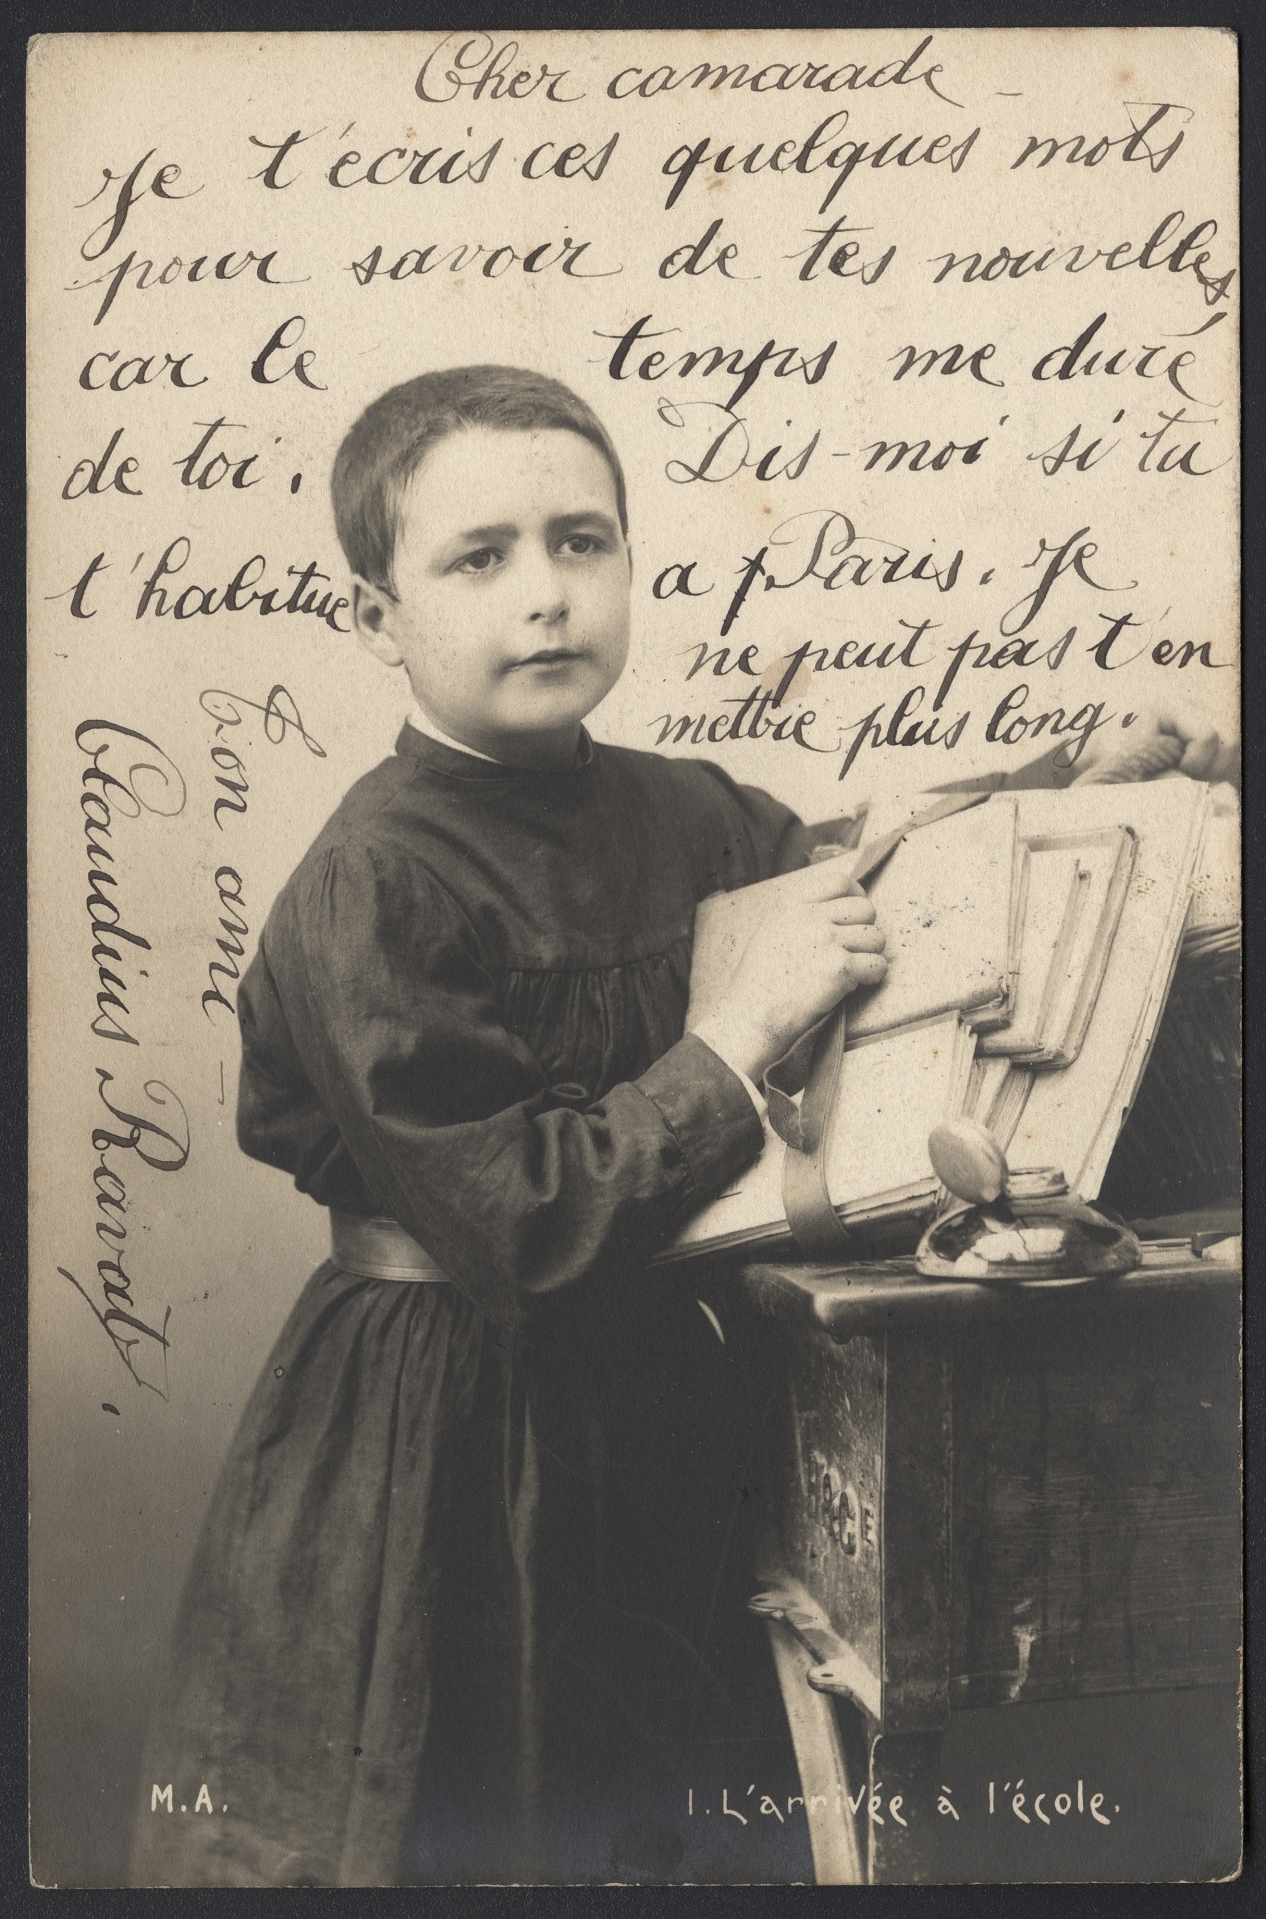 Cher camarade -
Je t'écris ces quelques mots
pour savoir de tes nouvelles
car le temps me duré
de toi. Dis-moi si tu
t'habitue a Paris. Je
ne peut pas t'en
mettre plus long.
Ton ami -
Claudius Ravat.
M.A.
1. L'arrivée à l'école.